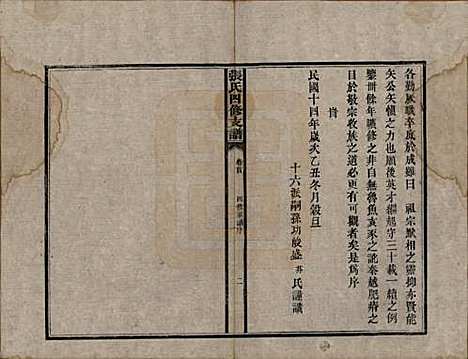 各勤厥職卒底於成雖曰　祖宗默相之靈抑亦賢能
矢公矢慎之力也願後英才繼起守三十載一續之例
鑒卅餘年曠修之非自無魯魚亥豕之訛秦越肥瘠之
目於敬宗收族之道必更有可觀者矣是為序
旹
民國十四年歲次乙丑冬月穀旦
十六派嗣孫功
盛
氏謹識
張氏四修支譜
卷首
四修
序
二